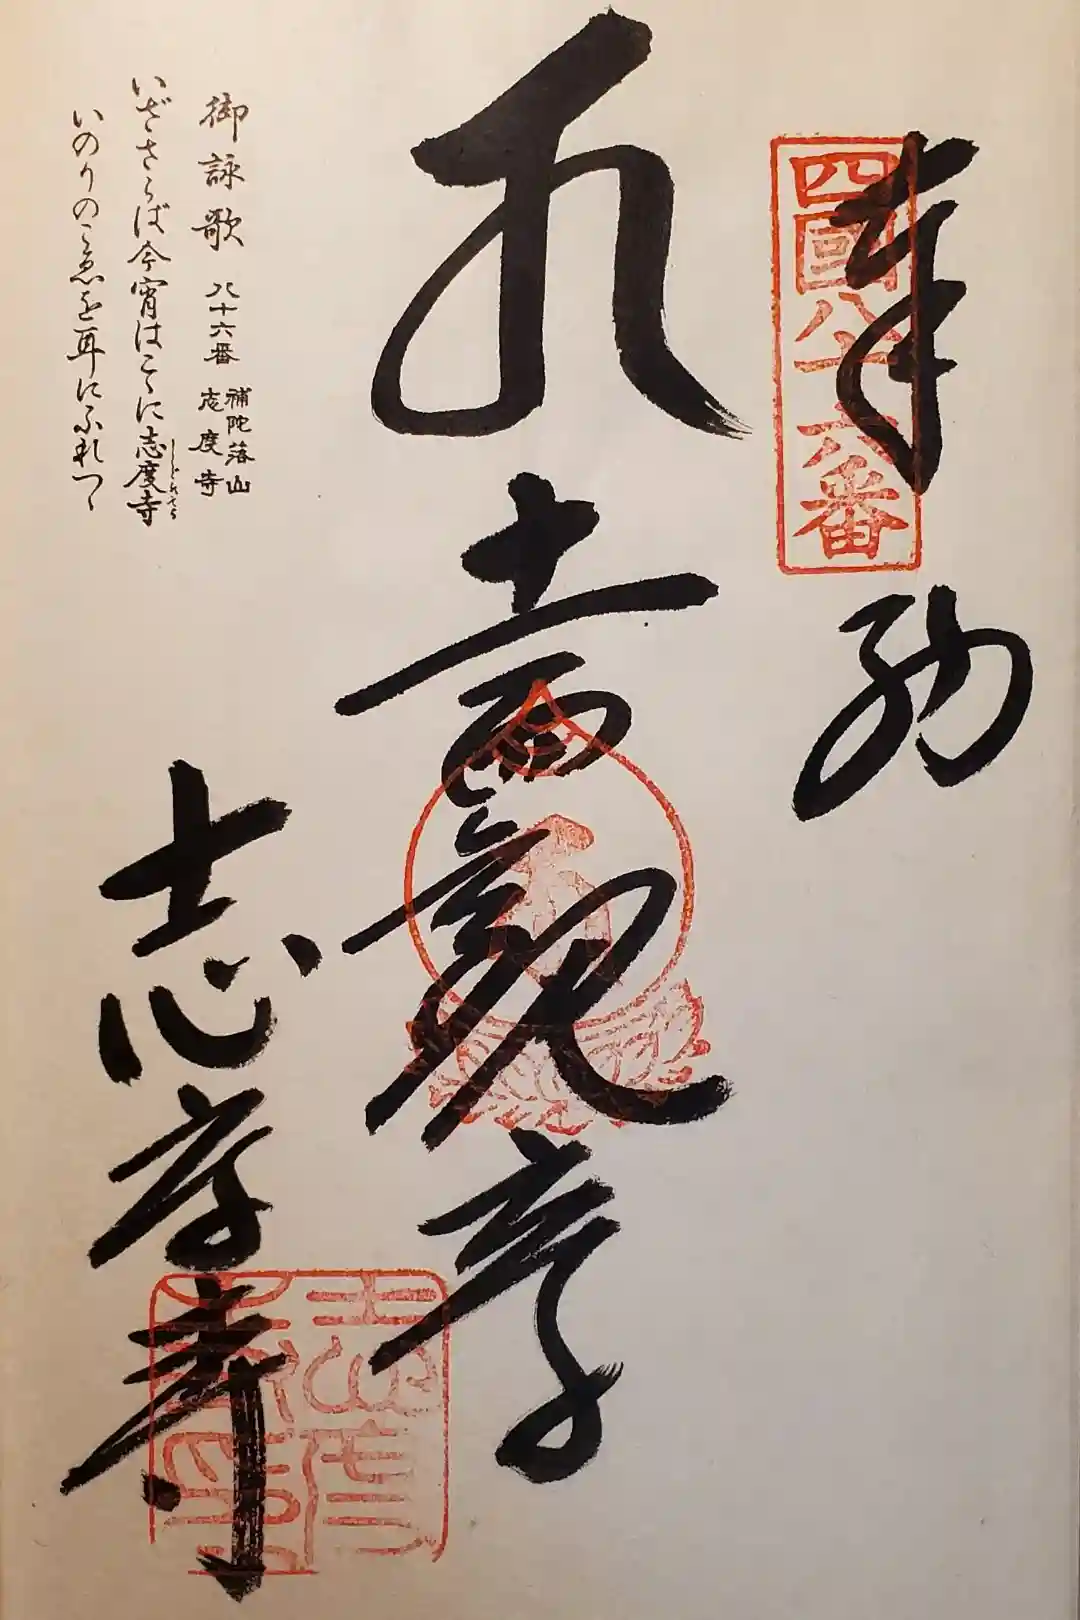 四国八十六番
奉納
十一面観音
志度寺
御詠歌 八十六番 補陀落山
志度寺
いざさらば今宵はこゝに志度寺
しどのてら
いのりのこゑを耳にふれつゝ